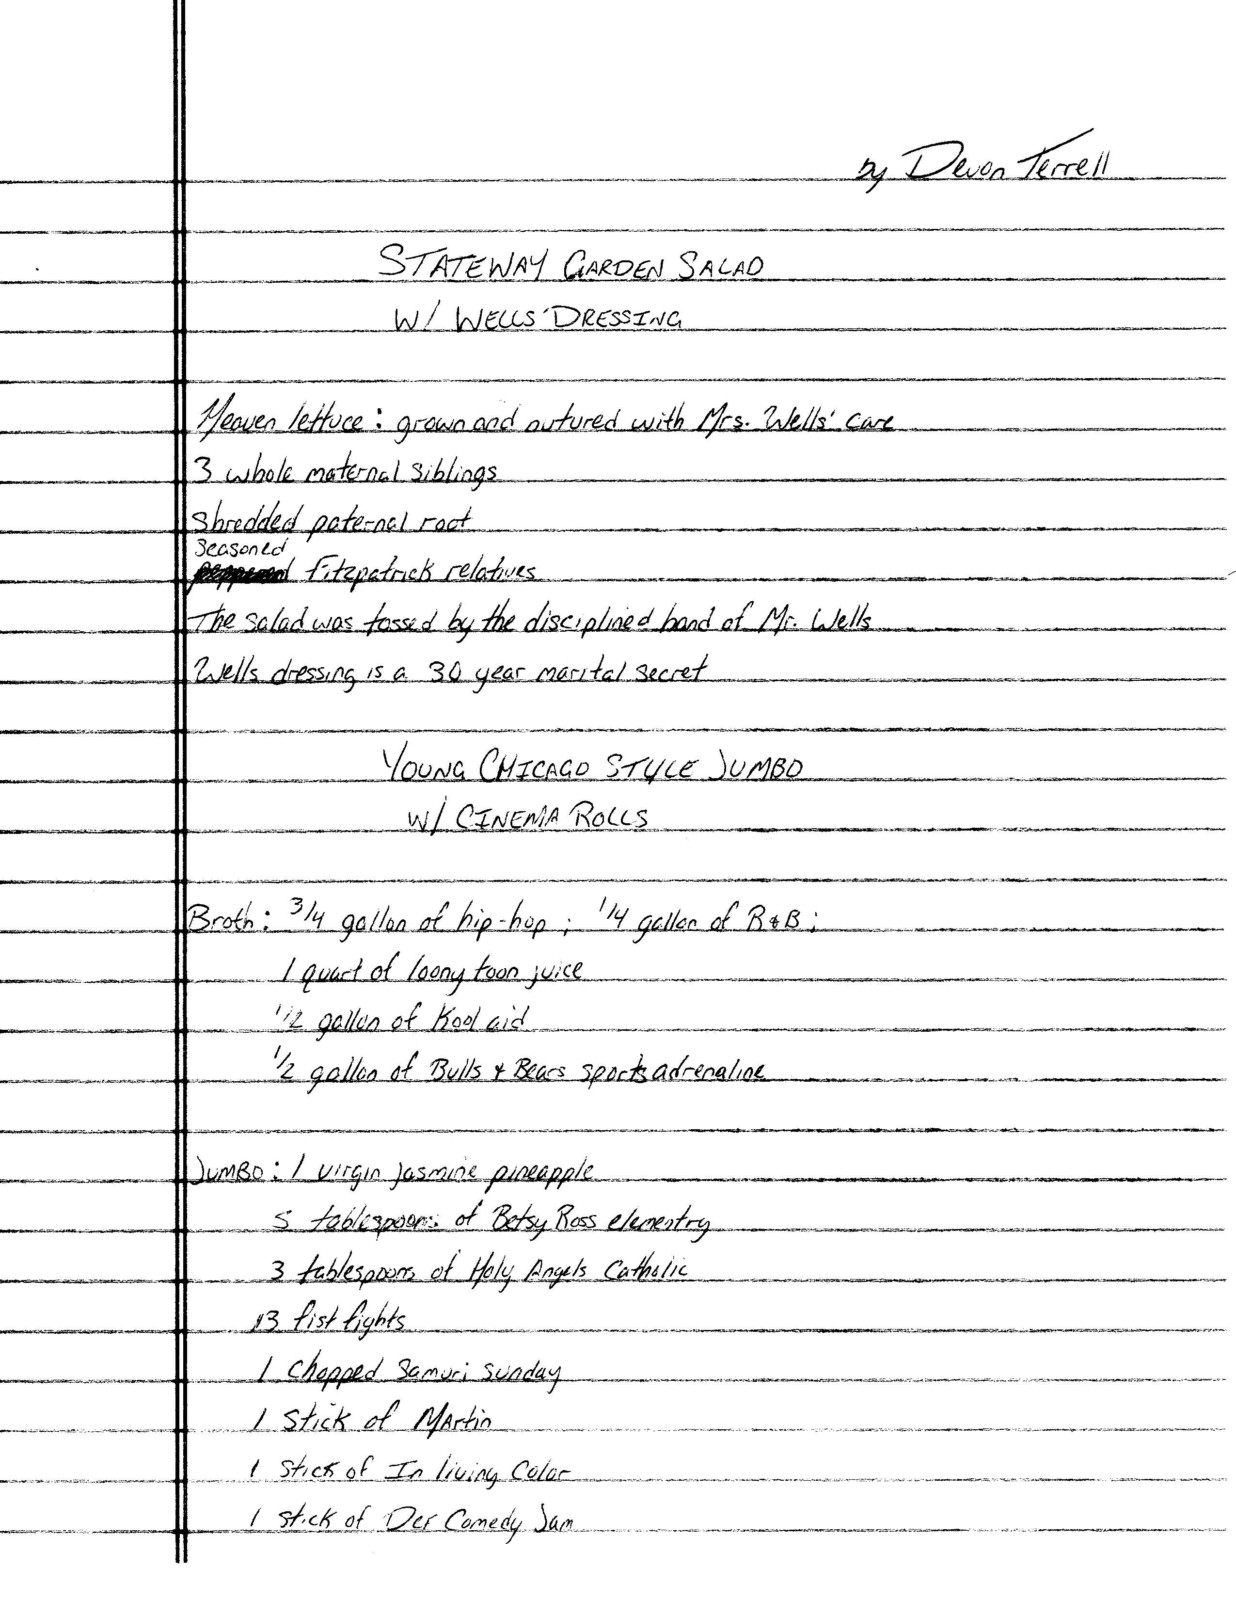 by Devon Terrell
STATEWAY GARDEN SALAD
W/ WELLS' DRESSING
Heaven lettuce: grown and nutured with Mrs. Wells' care
3 whole maternal siblings
Shredded paternal root
seasoned
Fitzpatrick relatives
The salad was tossed by the disciplined hand of Mr. Wells
Wells dressing is a 30 year marital secret
YOUNG CHICAGO STYLE JUMBO
W/ CINEMA ROLLS
Broth: 3/4 gallon of hip-hop; 1/4 gallon of R&B;
1 quart of loony toon juice
1/2 gallon of Kool aid
1/2 gallon of Bulls & Bears sports adrenaline
JUMBO: 1 virgin jasmine pineapple
5 tablespoons of Betsy Ross elementry
3 tablespoons of Holy Angels Catholic
13 fist fights
1 chopped Samuri Sunday
1 stick of Martin
1 stick of In living Color
1 stick of Def Comedy Jam